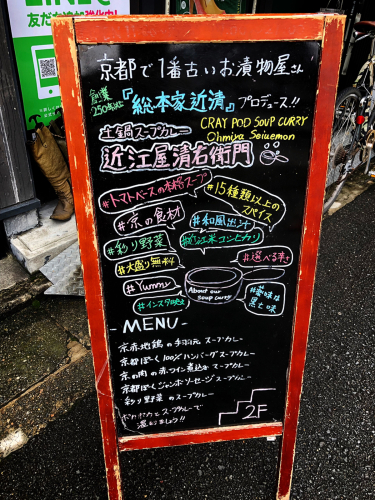 LINEで
友だち追加
京都で1番古いお漬物屋さん
創業
250年以上
『総本家近清』プロデュース!!
土鍋スープカレー
CRAY POD SOUP CURRY
Ohmiya Seiuemon
近江屋清右衛門
#トマトベースの本格スープ
#15種類以上の
スパイス
#京の食材
#和風出汁
#彩り野菜
#近江米コシヒカリ
#大盛り無料
#選べる辛さ
#Yummy
About our
soup curry
#インスタ映え
-MENU-
京赤地鶏の手羽元 スープカレー
京都ぽーく100%ハンバーグスープカレー
京の肉の赤ワイン煮込み スープカレー
京都ぽーくジャンボソーセージ スープカレー
彩り野菜のスープカレー
ポカポカとスープカレーで
温まりましょう!!
2F